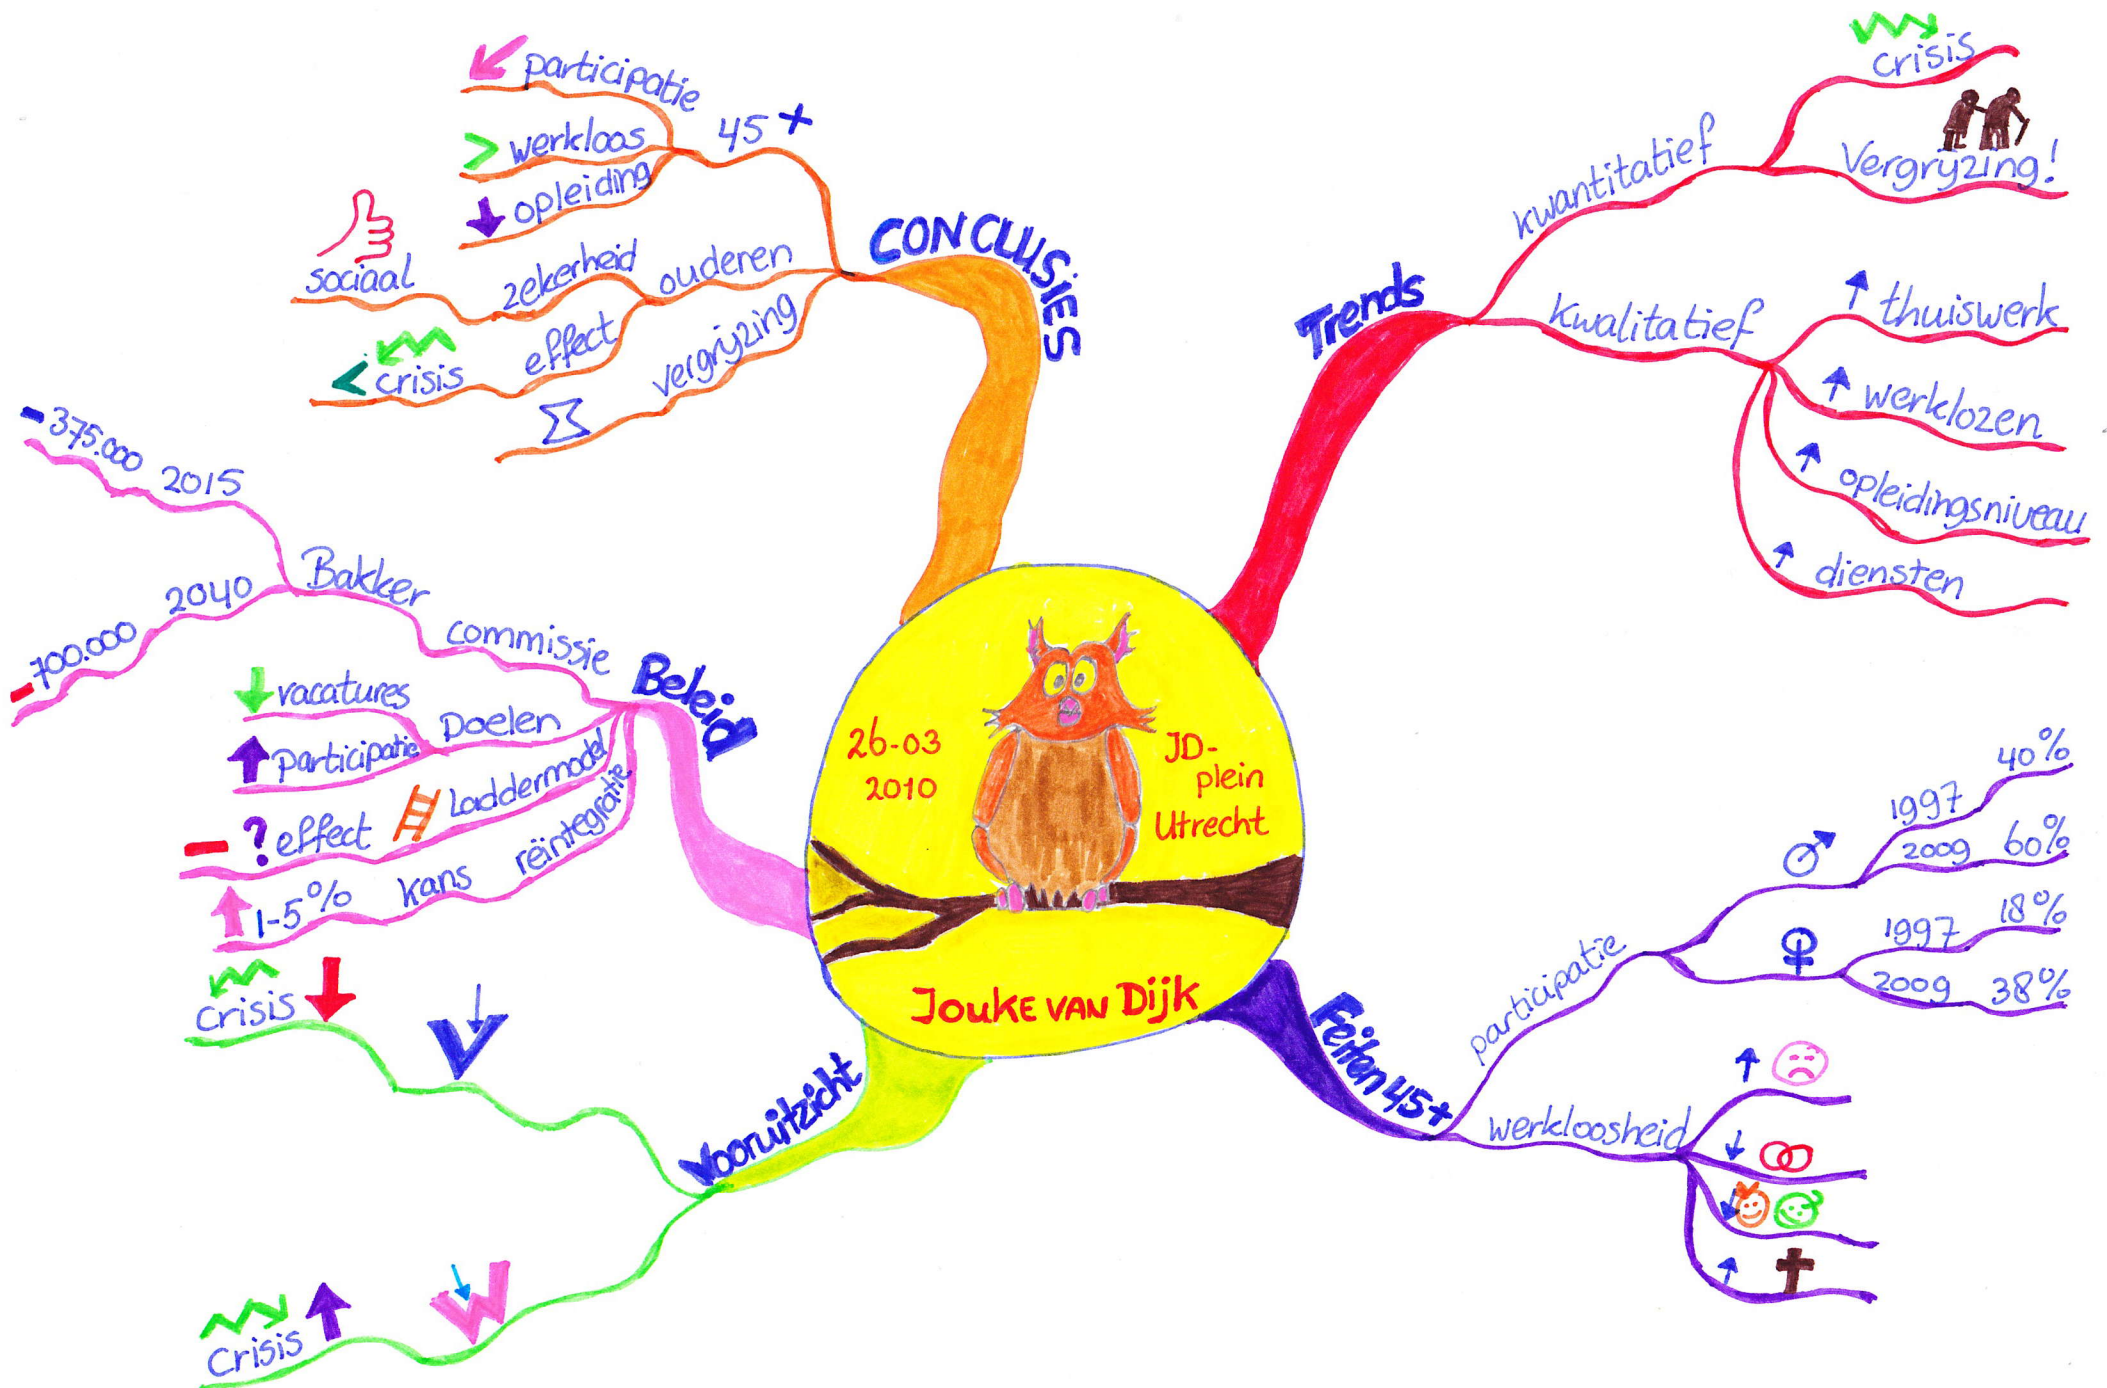 26-03
2010
JD-
plein
Utrecht
Jouke van Dijk
Trends
kwantitatief
crisis
Vergrijzing!
kwalitatief
thuiswerk
werklozen
opleidingsniveau
diensten
Feiten 45+
participatie
1997 40%
2009 60%
1997 18%
2009 38%
werkloosheid
Vooruitzicht
V
crisis
W
crisis
Beleid
commissie
Bakker
2015
-375.000
2040
-700.000
Doelen
vacatures
Participatie
Laddermodel
? effect
reïntegratie
kans
1-5%
CONCLUSIES
45+
participatie
> werkloos
opleiding
ouderen
zekerheid
sociaal
effect
< crisis
vergrijzing
Σ